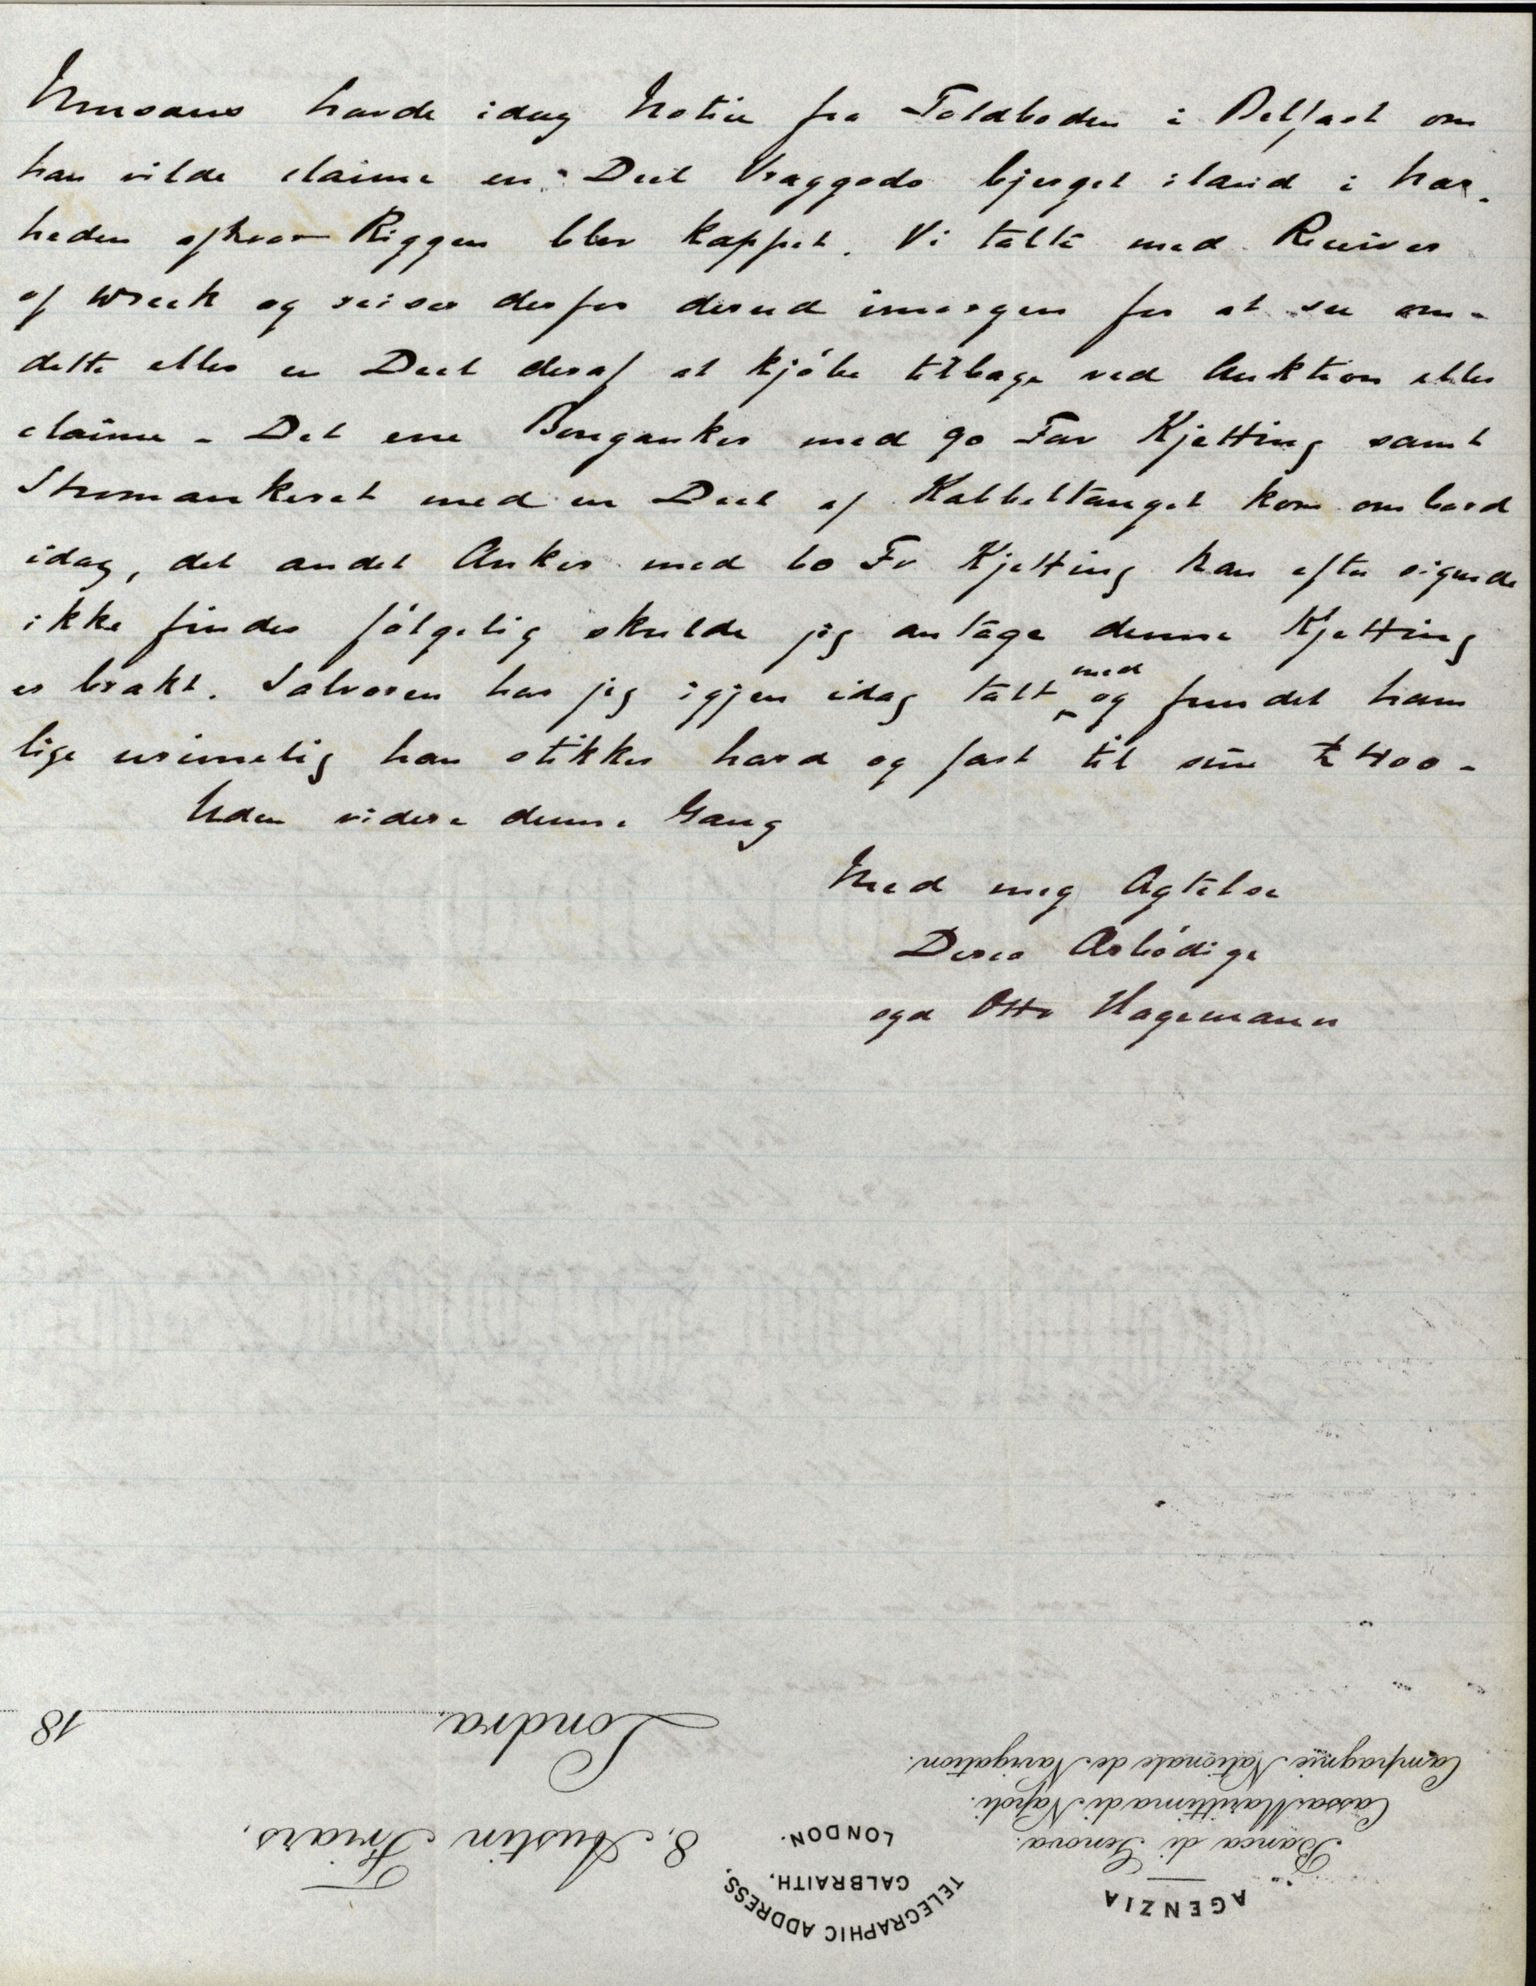 havde idag Notice fra Toldboden i Belfast om
han vilde claime en Deel Vraggods bjerget iland i Nær-
heden af hvor Riggen blev kappet. Vi talte med Receiver
of Wreck og reiser derfor derud imorgen for at see om
dette eller en Deel deraf at kjöbe tilbage ved Auktion eller
claime - Det ene Bouganker med 90 Fav Kjetting samt
Stromankeret med en Deel af Kabbeltauget kom ombord
idag, det andet Anker med 60 Fv Kjetting kan efter sigende
ikke findes fölgelig skulde jeg antage denne Kjetting
er brakt. Salvoren har jeg igjen idag talt med og fundet ham
lige urimelig han stikker hard og fast til sine £ 400 -
Uden videre denne Gang
Med meg Agtelse
Deres Ærbödige
sgd Otto Hagemann
AGENZIA
Banca di Genova.
Cassa Marittima di Napoli.
Compagnie Nationale de Navigation.
TELEGRAPHIC ADDRESS,
GALBRAITH,
LONDON.
8, Austin Friars,
Londra, 18